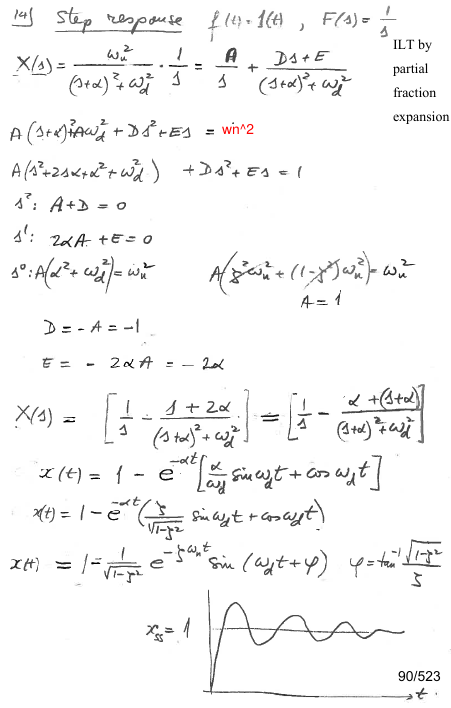 14) Step response f(t)=1(t), F(s)=1/s
ILT by
partial
fraction
expansion
X(s) = ωn²/((s+α)²+ωd²) · 1/s = A/s + (Ds+E)/((s+α)²+ωd²)
A(s+α)²+Aωd² + Ds²+Es = wn^2
A(s²+2sα+α²+ωd²) + Ds²+Es = 1
s²: A+D = 0
s¹: 2αA + E = 0
s⁰: A(α²+ωd²) = ωn² A(ζ²ωn² + (1-ζ²)ωn²) = ωn²
A = 1
D = -A = -1
E = - 2αA = - 2α
X(s) = [1/s - (s+2α)/((s+α)²+ωd²)] = [1/s - (α+(s+α))/((s+α)²+ωd²)]
x(t) = 1 - e^-αt [α/ωd sin ωdt + cos ωdt]
x(t) = 1 - e^-αt (ζ/√(1-ζ²) sin ωdt + cos ωdt)
x(t) = 1 - 1/√(1-ζ²) e^-ζωnt sin (ωdt+φ) φ = tan⁻¹ √(1-ζ²)/ζ
xss = 1
90/523
t